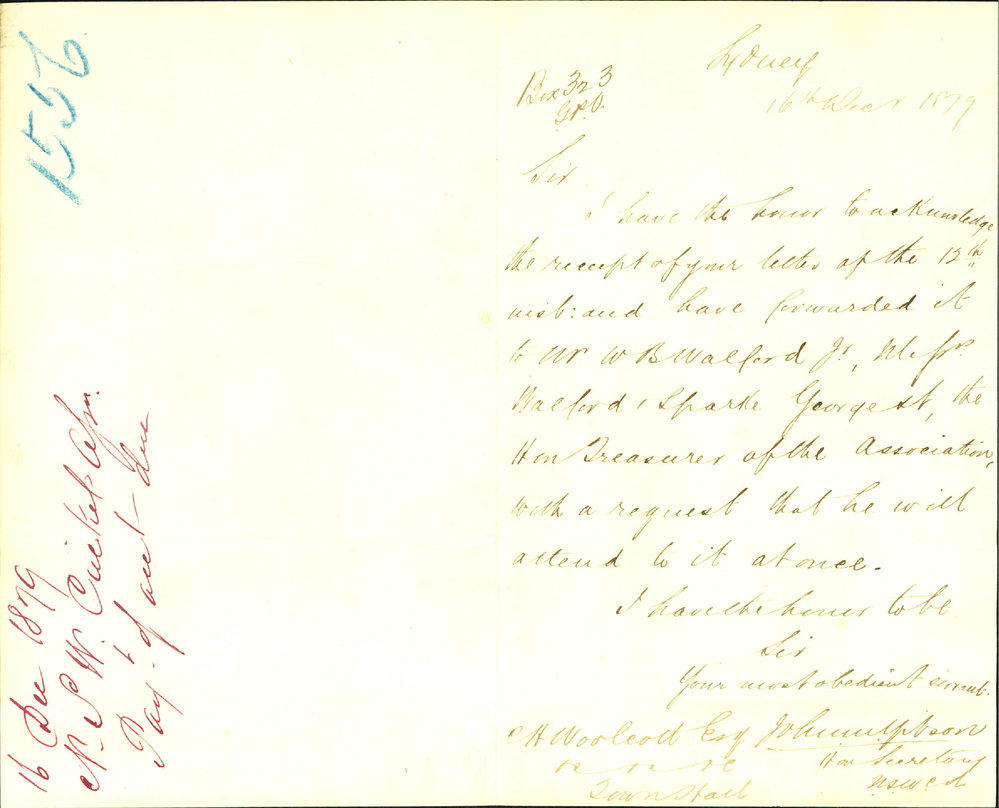 1556
16 Dec 1879
N. S. W. Cricket Assn.
Paymt of acct due
Box 323
G.P.O.
Sydney
16th Decr 1879
Sir
I have the honor to acknowledge
the receipt of your letter of the 12th
inst: and have forwarded it
to Mr W B Walford Jr, Messrs
Walford & Sparke George st, the
Hon Treasurer of the Association,
with a request that he will
attend to it at once.
I have the honor to be
Sir
Your most obedient servt.
C H Woolcott Esq
Hon Secretary
NSWCA
Town Hall